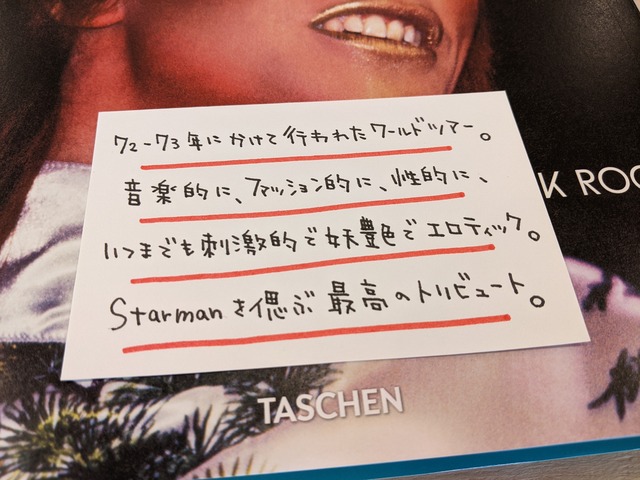 72-73年にかけて行われたワールドツアー。
音楽的に、ファッション的に、性的に、
いつまでも刺激的で妖艶色でエロティック。
Starmanを偲ぶ最高のトリビュート。
K ROC
TASCHEN